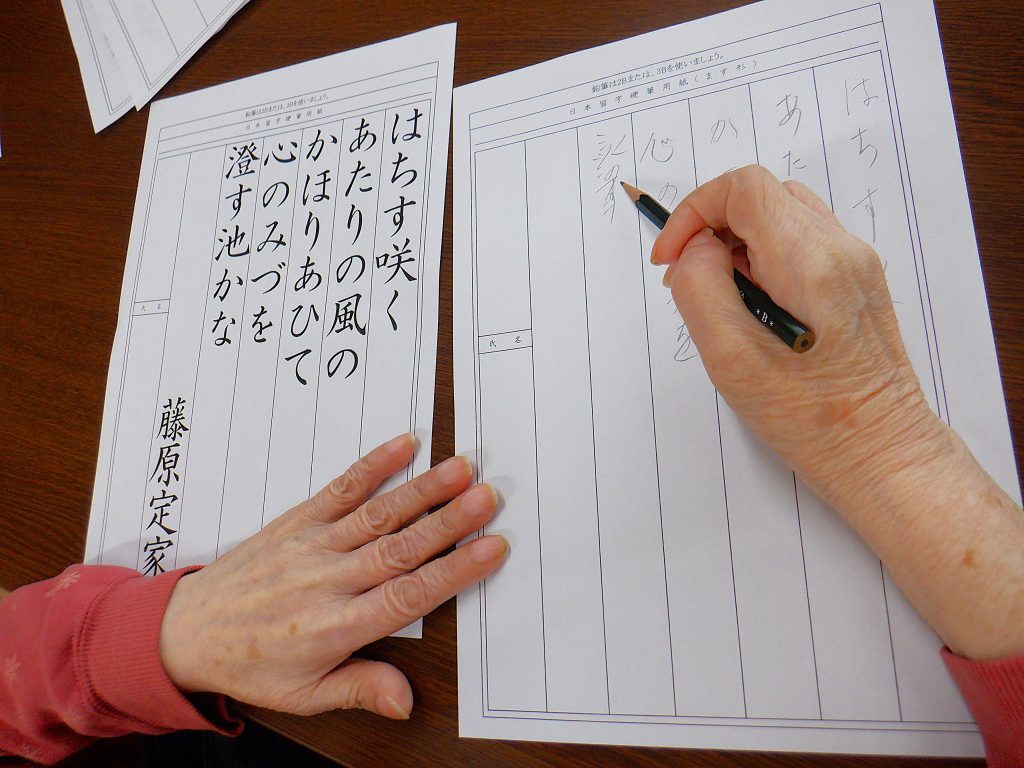 鉛筆は2Bまたは、3Bを使いましょう。
日本習字硬筆用紙
はちす咲く
あたりの風の
かほりあひて
心のみづを
澄す池かな
藤原定家
氏名
鉛筆は2Bまたは、3Bを使いましょう。
日本習字硬筆用紙(ます形)
はちす
あた
か
心の
を
氏名
*B*